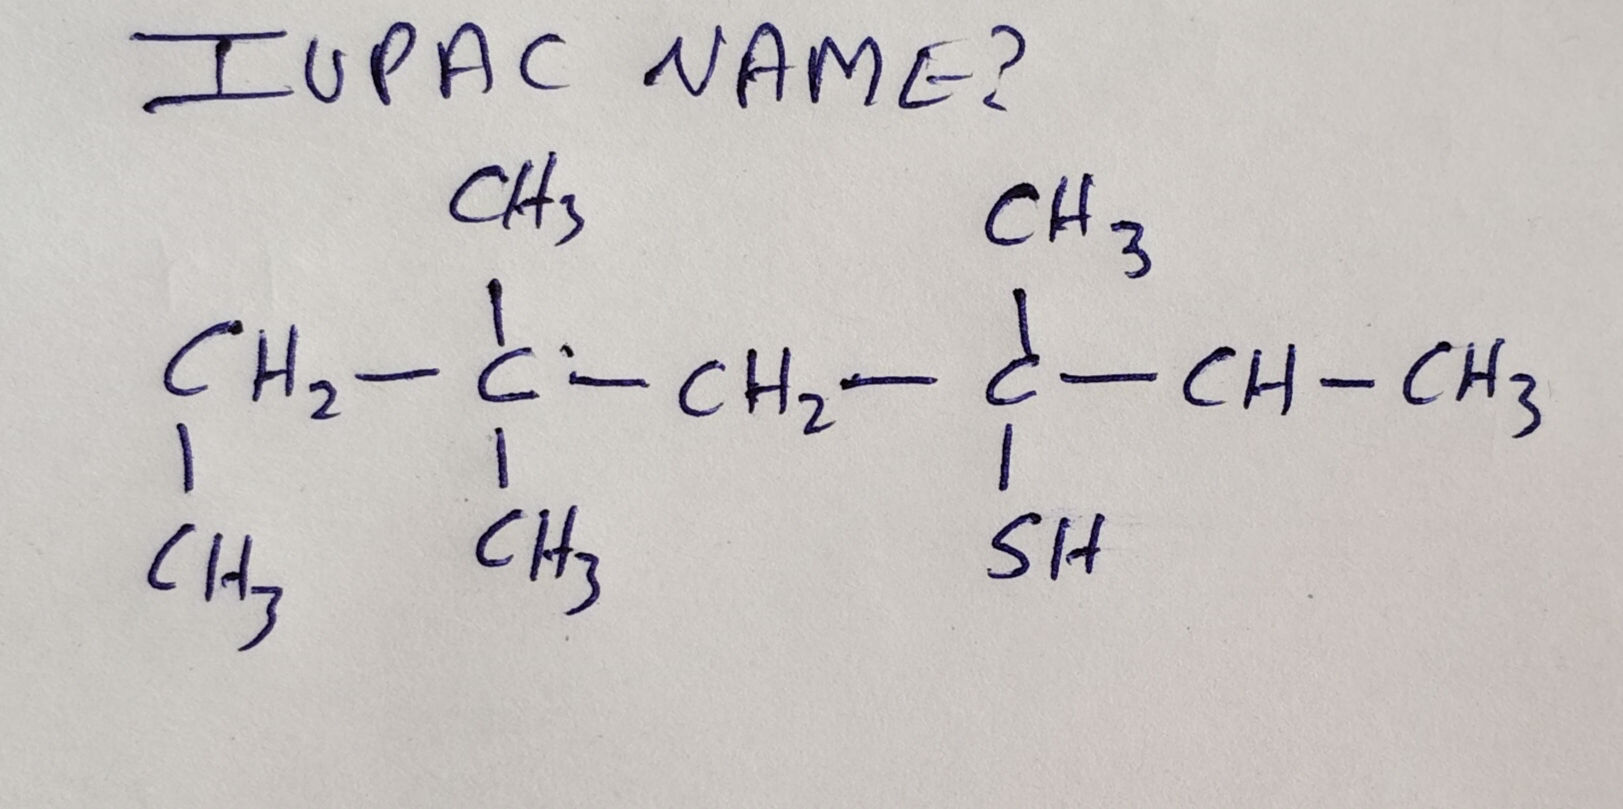 IUPAC NAME?
CH3 CH3
CH2-C-CH2-C-CH-CH3
CH3 CH3 SH